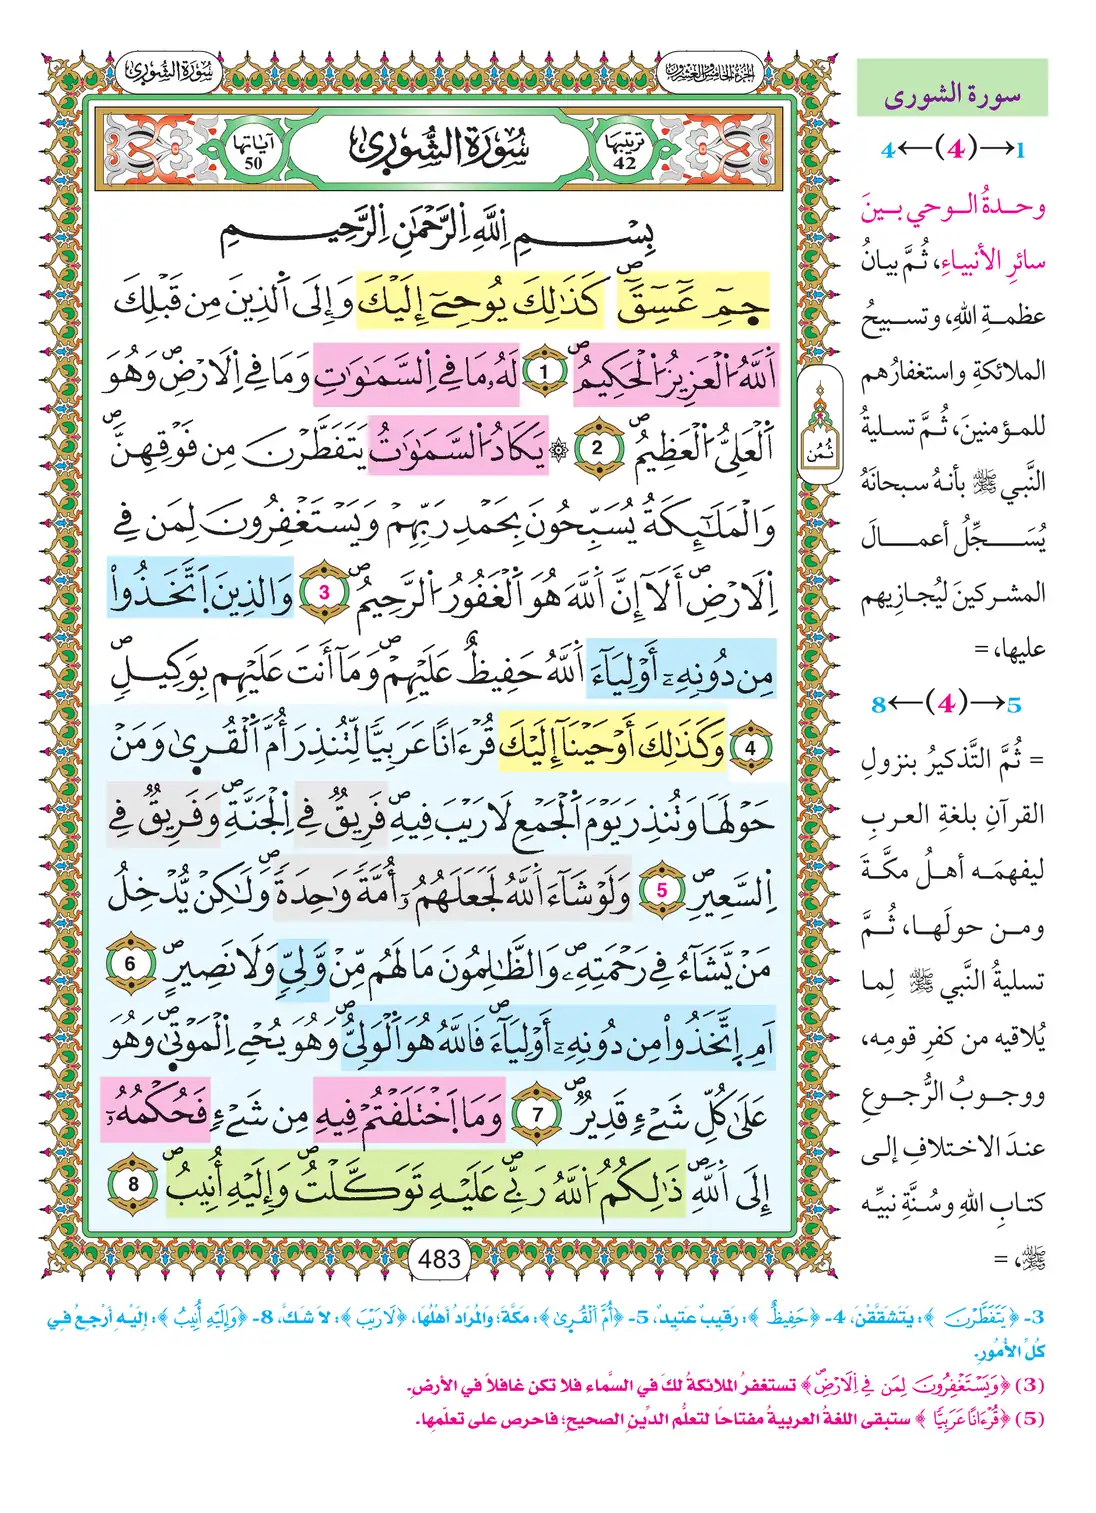 سُورَةُ الشُّورىٰ
الجزء الخامس والعشرون
سورة الشورى
ترتيبها
42
سُورَةُ الشُّورىٰ
آياتها
50
بِسْمِ اِللَّهِ اِلرَّحْمَٰنِ اِلرَّحِيمِ
جِمٓ عَٓسِٓقَٓ كَذَٰلِكَ يُوحِےٓ إِلَيْكَ وَإِلَى اَلذِينَ مِن قَبْلِكَ
اَللَّهُ اُلْعَزِيزُ اُلْحَكِيمُ 1 لَهُۥ مَا فِے اِلسَّمَٰوَٰتِ وَمَا فِے اِلَارْضِ وَهُوَ
اَلْعَلِىُّ اُلْعَظِيمُ 2 ۞ يَكَادُ اُلسَّمَٰوَٰتُ يَتَفَطَّرْنَ مِن فَوْقِهِنَّ
وَالْمَلَٰٓئِكَةُ يُسَبِّحُونَ بِحَمْدِ رَبِّهِمْ وَيَسْتَغْفِرُونَ لِمَن فِے
اِلَارْضِ أَلَآ إِنَّ اَللَّهَ هُوَ اَلْغَفُورُ اُلرَّحِيمُ 3 وَالذِينَ اَتَّخَذُواْ
مِن دُونِهِۦٓ أَوْلِيَآءَ اَللَّهُ حَفِيظٌ عَلَيْهِمْ وَمَآ أَنتَ عَلَيْهِم بِوَكِيلٍ
4 وَكَذَٰلِكَ أَوْحَيْنَآ إِلَيْكَ قُرْءَاناً عَرَبِيّاً لِّتُنذِرَ أُمَّ اَلْقُر۪ىٰ وَمَنْ
حَوْلَهَا وَتُنذِرَ يَوْمَ اَلْجَمْعِ لَا رَيْبَ فِيهِ فَرِيقٌ فِے اِلْجَنَّةِ وَفَرِيقٌ فِے
اِلسَّعِيرِ 5 وَلَوْ شَآءَ اَللَّهُ لَجَعَلَهُمُۥٓ أُمَّةً وَٰحِدَةً وَلَٰكِنْ يُّدْخِلُ
مَنْ يَّشَآءُ فِے رَحْمَتِهِۦ وَالظَّٰلِمُونَ مَا لَهُم مِّنْ وَّلِىٍّ وَلَا نَصِيرٍ 6
اَمِ اِتَّخَذُواْ مِن دُونِهِۦٓ أَوْلِيَآءَ فَاللَّهُ هُوَ اَلْوَلِىُّ وَهُوَ يُحْىِ اِلْمَوْتَىٰ وَهُوَ
عَلَىٰ كُلِّ شَےْءٍ قَدِيرٌ 7 وَمَا اَخْتَلَفْتُمْ فِيهِ مِن شَےْءٍ فَحُكْمُهُۥٓ
إِلَى اَللَّهِ ذَٰلِكُمُ اُللَّهُ رَبِّے عَلَيْهِ تَوَكَّلْتُ وَإِلَيْهِ أُنِيبُ 8
ثُمُن
483
سورة الشورى
1→(4)←4
وحدةُ الوحي بينَ
سائرِ الأنبياءِ، ثُمَّ بيانُ
عظمةِ اللهِ، وتسبيحُ
الملائكةِ واستغفارُهم
للمؤمنينَ، ثُمَّ تسليةُ
النَّبي ﷺ بأنهُ سبحانَهُ
يُسَجِّلُ أعمالَ
المشركينَ ليُجازِيهم
عليها، =
5→(4)←8
= ثُمَّ التَّذكيرُ بنزولِ
القرآنِ بلغةِ العربِ
ليفهمَه أهلُ مكَّةَ
ومن حولَها، ثُمَّ
تسليةُ النَّبي ﷺ لِما
يُلاقيه من كفرِ قومِه،
ووجوبُ الرُّجوعِ
عندَ الاختلافِ إلى
كتابِ اللهِ وسُنَّةِ نبيِّه
ﷺ، =
3- ﴿يَتَفَطَّرْنَ﴾: يتَشقَّقْنَ، 4- ﴿حَفِيظٌ﴾: رقيبٌ عتيدٌ، 5- ﴿أُمَّ اَلْقُر۪ىٰ﴾: مكَّةَ؛ والمُرادُ أهلُها، ﴿لَا رَيْبَ﴾: لا شكَّ، 8- ﴿وَإِلَيْهِ أُنِيبُ﴾: إليْهِ أرجعُ في
كُلِّ الأمُورِ.
(3) ﴿وَيَسْتَغْفِرُونَ لِمَن فِے اِلَارْضِ﴾ تستغفرُ الملائكةُ لكَ في السَّماء فلا تكن غافلاً في الأرضِ.
(5) ﴿قُرْءَاناً عَرَبِيّاً﴾ ستبقى اللغةُ العربيةُ مفتاحًا لتعلُّم الدِّينِ الصحيحِ؛ فاحرص على تعلّمِها.